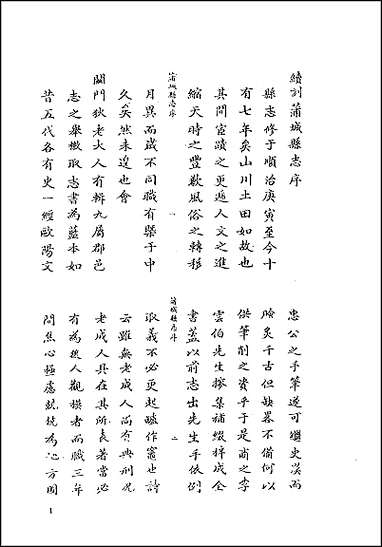 續刻蒲城縣志序
縣志修于順治庚寅至今十
有七年矣山川土田如故也
其間宦蹟之更遞人文之進
縮天時之豐歉風俗之轉移
蒲城縣志序
一
月異而歲不同職有槩于中
久矣然未遑也會
關門狄老大人有輯九屬郡邑
志之舉檄取志書為藍本如
昔五代各有史一經歐陽文
忠公之手筆遂可繼史漢而
膾炙千古但缺畧不備何以
供筆削之資乎于是甫之李
雲伯先生搜集補綴梓成全
書蓋以前志出先生手依例
蒲城縣志序
二
取義不必更起爐作竈也詩
云雖無老成人尚有典刑況
老成人具在其所長著當必
有為後人觀摸者而職三年
間焦心極慮兢兢為地方圖
1